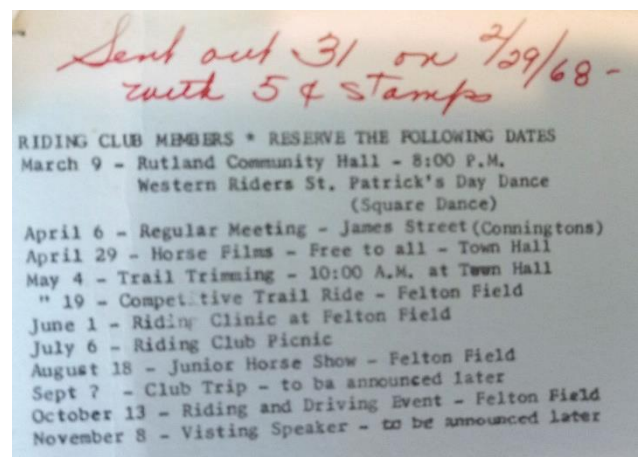 Sent out 31 on 2/29/68 -
with 5¢ stamps
RIDING CLUB MEMBERS * RESERVE THE FOLLOWING DATES
March 9 - Rutland Community Hall - 8:00 P.M.
Western Riders St. Patrick's Day Dance
(Square Dance)
April 6 - Regular Meeting - James Street (Conningtons)
April 29 - Horse Films - Free to all - Town Hall
May 4 - Trail Trimming - 10:00 A.M. at Town Hall
" 19 - Competitive Trail Ride - Felton Field
June 1 - Riding Clinic at Felton Field
July 6 - Riding Club Picnic
August 18 - Junior Horse Show - Felton Field
Sept ? - Club Trip - to ba announced later
October 13 - Riding and Driving Event - Felton Field
November 8 - Visting Speaker - to be announced later